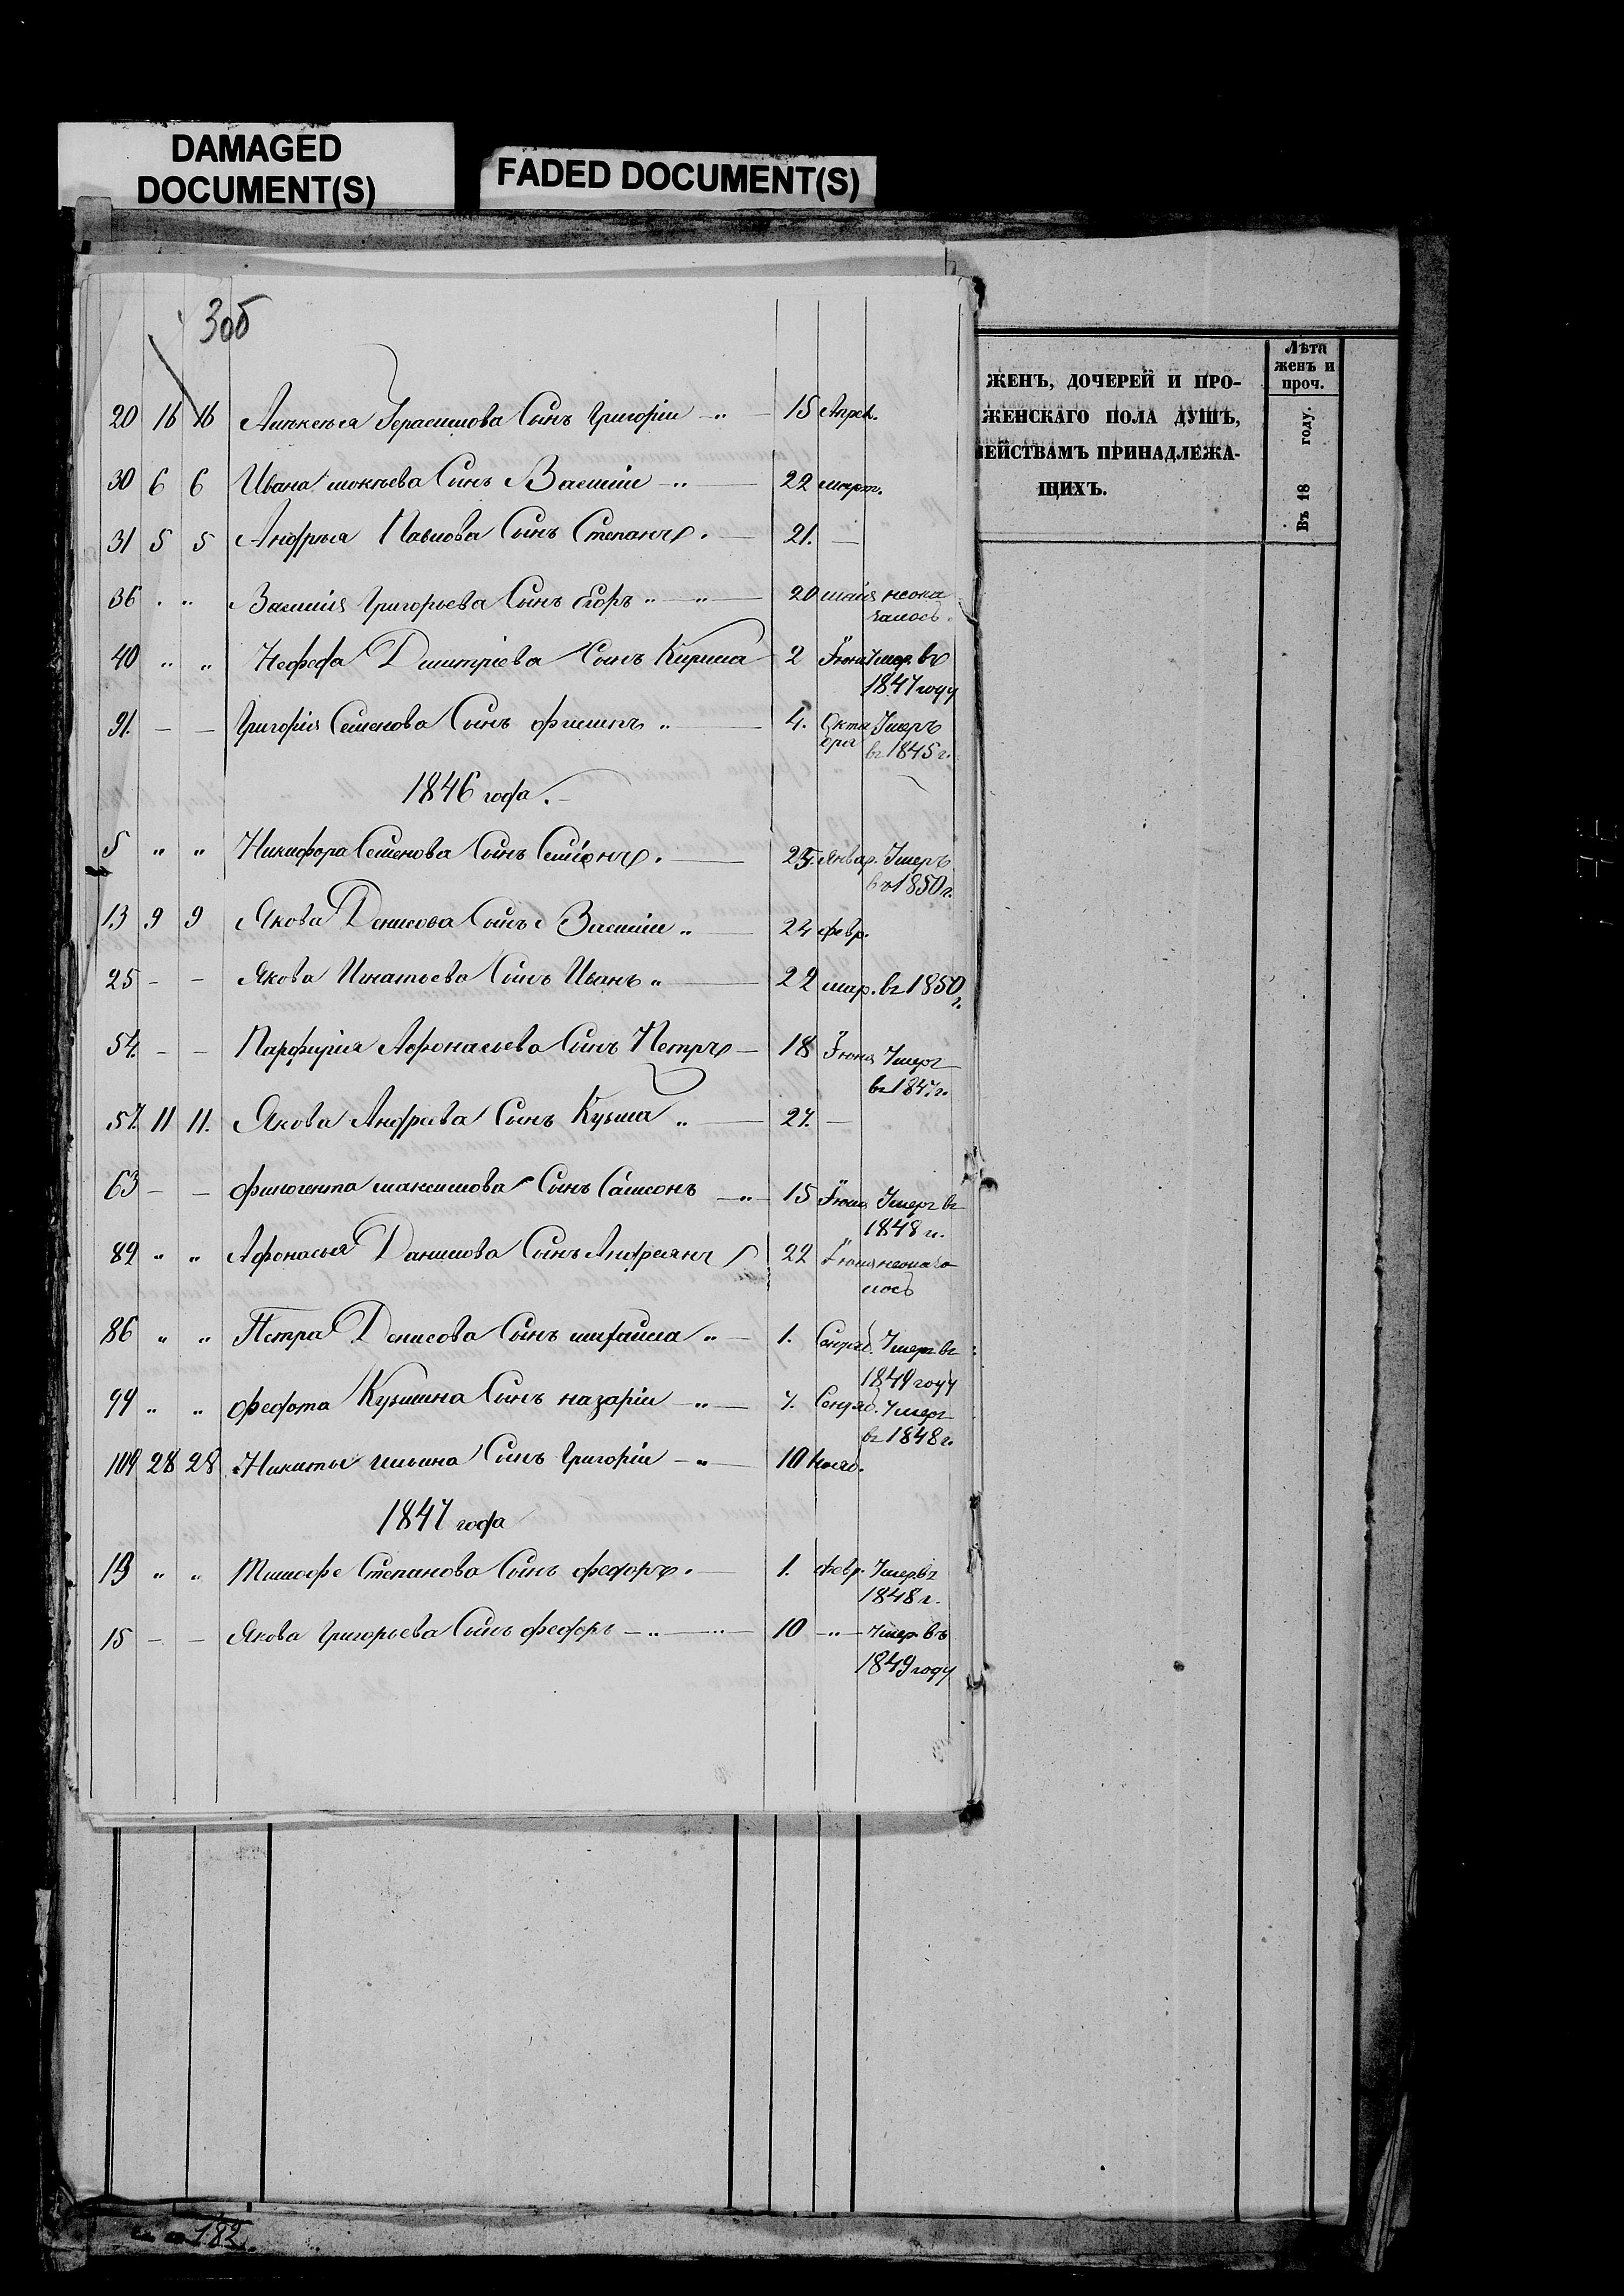 DAMAGED
DOCUMENT(S)
FADED DOCUMENT(S)
306
20 16 16 Алексея Герасимова Сынъ Григорiи 15 Апрел.
30 6 6 Ивана Сынъ Василiи 22 март.
31 5 5 Андрея Павлова Сынъ Степанъ. 21. —
36 . „ Василiя Григорьева Сынъ Егоръ „ „ 20 маiя неока
залось.
40 „ „ Нефеда Дмитрiева Сынъ Кирила 2 Iюня Умер. въ
1847 году
91. — — Григорiя Семенова Сынъ филипъ „ 4. Октя Умеръ
бря въ 1845 г.
1846 года.
5 „ „ Никифора Семенова Сынъ Семiонъ. 25. Январ. Умеръ
въ 1850 г.
13 9 9 Якова Денисова Сынъ Василiи „ 24 февр.
25 — — Якова Игнатьева Сынъ Иванъ „ 22 мар. въ 1850
г.
54. — — Парфирiя Афонасьева Сынъ Петръ — 18 Iюня Умеръ
въ 1847 г.
57. 11 11. Якова Андреева Сынъ Кузма „ 27. —
63 — — филогента максимова Сынъ Самсонъ „ 15 Iюня Умеръ въ
1848 г.
82 „ „ Афонасья Данилова Сынъ Андреянъ 22 неоказа
лось
86 „ „ Петра Денисова Сынъ михаила „ 1. Сентяб. Умеръ въ
1849 году
94 „ „ федота Кузмина Сынъ назарiи „ 7. Сентяб. Умеръ
въ 1848 г.
109 28 28 Никиты ильина Сынъ Григорiи „ 10 нояб.
1847 года
13 „ „ Тимофе Степанова Сынъ федоръ. 1. февр. Умер. въ
1848 г.
15 — — Якова Григорьева Сынъ федоръ — „ „ 10 — „ — Умер. въ
1849 году
ЖЕНЪ, ДОЧЕРЕЙ И ПРО-
ЖЕНСКАГО ПОЛА ДУШЪ,
ЕЙСТВАМЪ ПРИНАДЛЕЖА-
ЩИХЪ.
Лѣта
женъ и
проч.
Въ 18 году.
182.